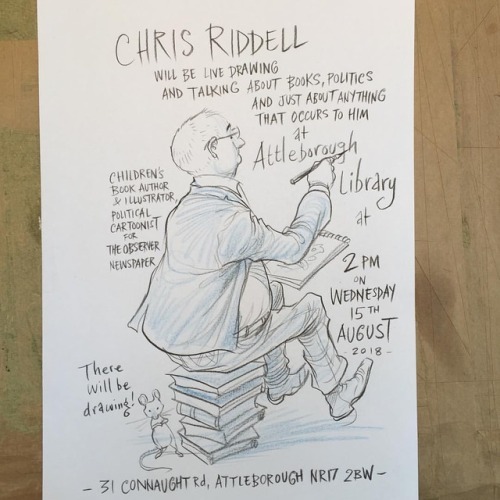 CHRIS RIDDELL
WILL BE LIVE DRAWING
AND TALKING ABOUT BOOKS, POLITICS
AND JUST ABOUT ANYTHING
THAT OCCURS TO HIM
at
Attleborough
Library
at
2 PM
ON
WEDNESDAY
15TH
AUGUST
- 2018 -
CHILDREN'S
BOOK AUTHOR
& ILLUSTRATOR,
POLITICAL
CARTOONIST
FOR
THE OBSERVER
NEWSPAPER
There
will be
drawing!
- 31 CONNAUGHT Rd, ATTLEBOROUGH NR17 2BW -